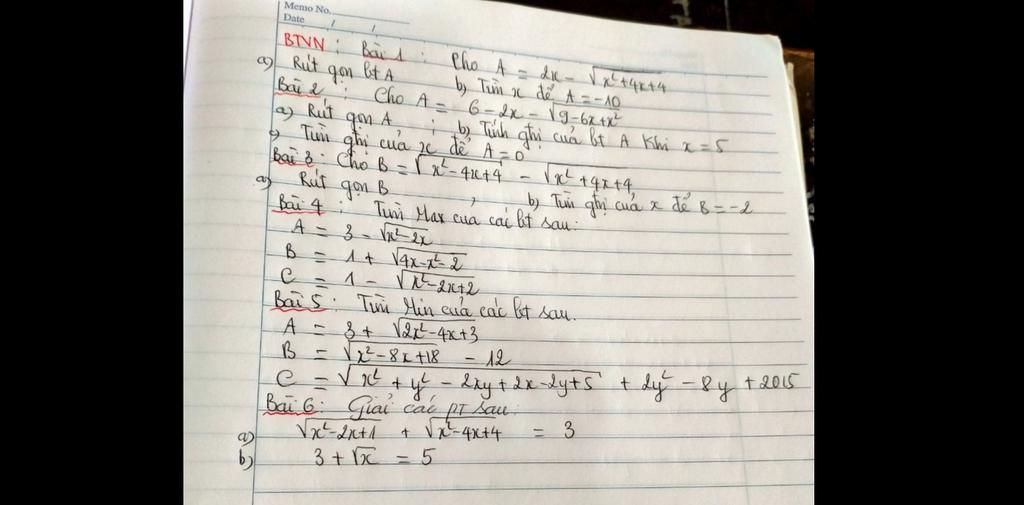 Memo No.
Date / /
BTVN : Bài 1 : Cho A = 2x - √(x²+4x+4)
a) Rút gọn bt A b) Tìm x để A = -10
Bài 2 : Cho A = 6 - 2x - √(9-6x+x²)
a) Rút gọn A ; b) Tính gtrị của bt A khi x = 5
c) Tìm gtrị của x để A = 0
Bài 3 : Cho B = √(x²-4x+4) - √(x²+4x+4)
a) Rút gọn B , b) Tìm gtrị của x để B = -2
Bài 4 : Tìm Max của các bt sau :
A = 3 - √(x²-2x)
B = 1 + √(4x-x²-2)
C = 1 - √(x²-2x+2)
Bài 5 : Tìm Min của các bt sau.
A = 3 + √(2x²-4x+3)
B = √(x²-8x+18) - 12
C = √(x²+y²-2xy+2x-2y+5) + 2y² - 8y + 2015
Bài 6 : Giải các pt sau :
a) √(x²-2x+1) + √(x²-4x+4) = 3
b) 3 + √x = 5